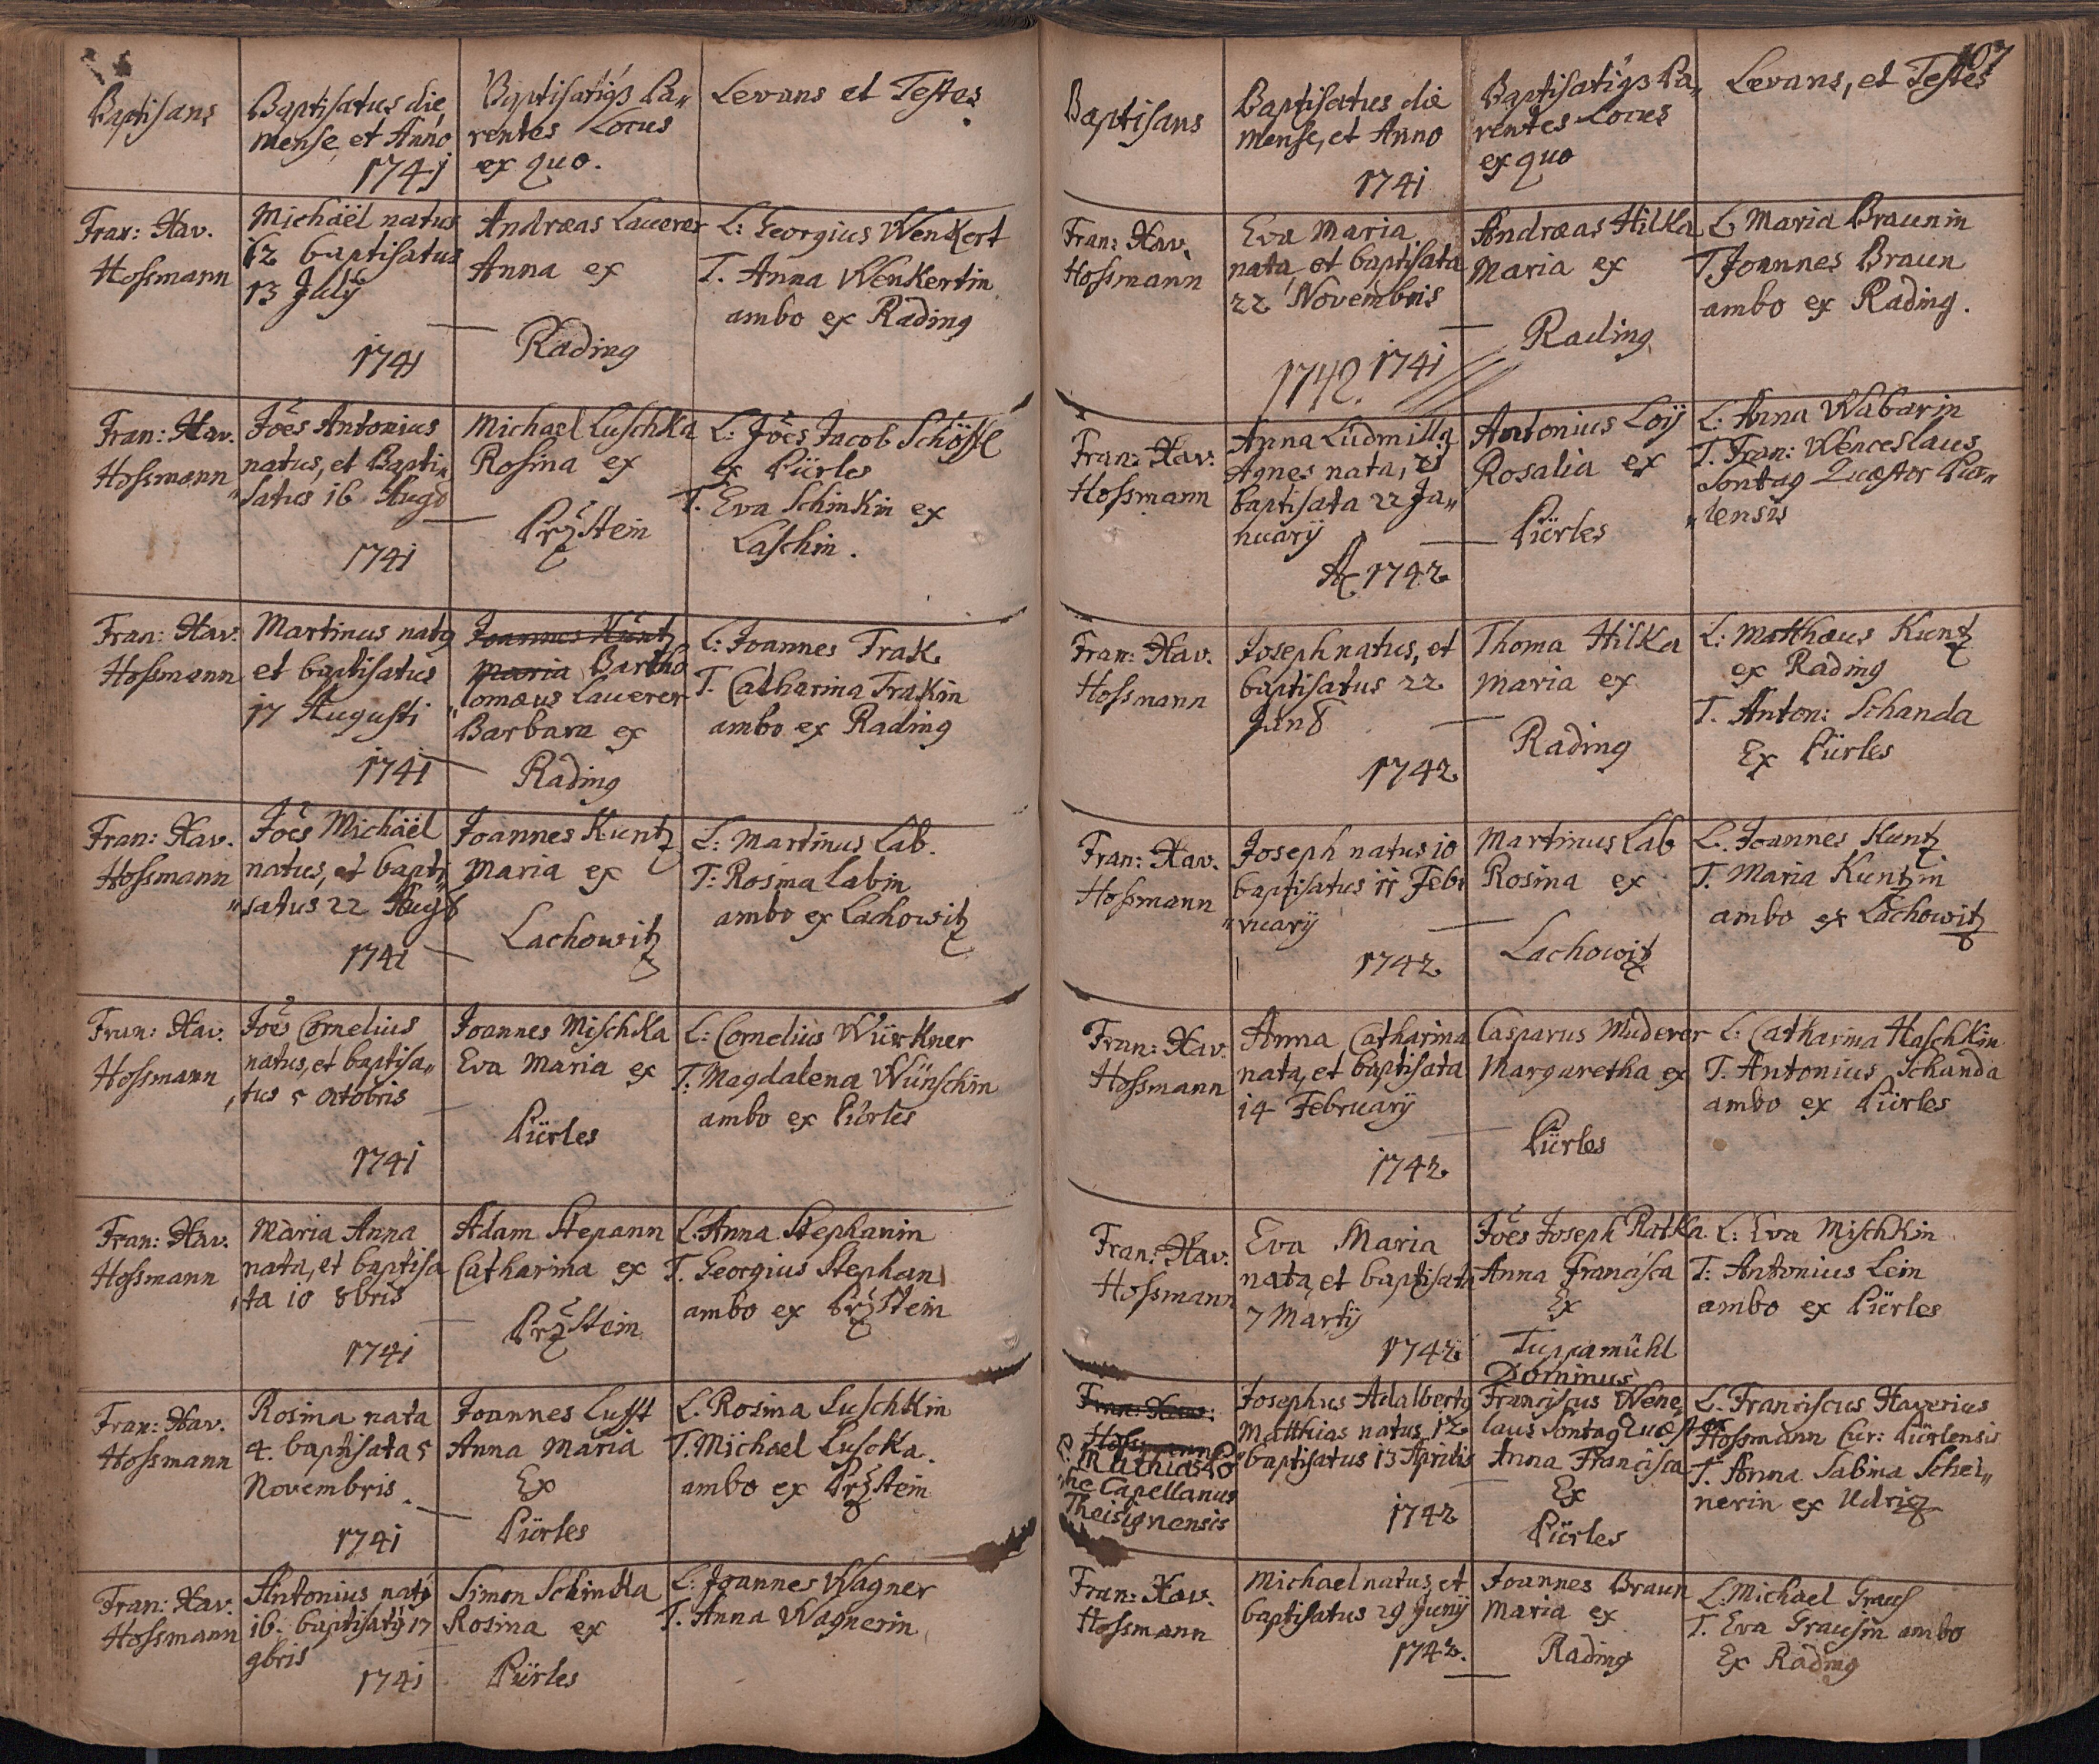 Baptisans
Baptisatus die
mense et Anno
1741
Baptisatiqs Pa„
rentes Locus
ex quo.
Levans et Testes
Fran: Xav.
Hossmann
Michäel natus
12 baptisatus
13 Julÿ
1741
Andræas Lauerer
Anna ex
Rading
L: Georgius WenKert
T. Anna WenKertin
ambo ex Rading
Fran: Xav.
Hossmann
Jões Antonius
natus, et Bapti„
„satus 16 Augo
1741
Michael LuschKa
Rosina ex
Przstein
L: Jões Jacob Schöffl
ex Pürles
T. Eva SchinKin ex
Laschin.
Fran: Xav.
Hossmann
Martinus natq
et baptisatus
17 Augusti
1741
Joannes Kuntz
Maria Bartho
„lomæus Lauerer
Barbara ex
Rading
L: Joannes Trak
T. Catharina TraKin
ambo ex Rading
Fran: Xav.
Hossmann
Jões Michäel
natus, et bapti„
„satus 22 Augo
1741
Joannes Kuntz
Maria ex
Lachowitz
L: Martinus Lab.
T: Rosina Labin
ambo ex Lachowitz
Fran: Xav.
Hossmann
Jões Cornelius
natus, et baptisa„
„tus 5 Octobris
1741
Joannes MischKa
Eva Maria ex
Pürles
L: Cornelius WürKner
T. Magdalena Wünschin
ambo ex Pürles
Fran: Xav.
Hossmann
Maria Anna
nata, et baptisa
„ta 10 8bris
1741
Adam Stepann
Catharina ex
Przstein
L. Anna Stephanin
T. Georgius Stephan
ambo ex Przstein
Fran: Xav.
Hossmann
Rosina nata
4. baptisata 5
Novembris.
1741
Joannes Lufft
Anna Maria
Ex
Pürles
L. Rosina LuschKin
T. Michael LuscKa.
ambo ex Przstein
Fran: Xav.
Hossmann
Antonius natq
16. baptisatq 17
9bris
1741
Simon SchinKa
Rosina ex
Pürles
L: Joannes Wagner
T. Anna Wagnerin
107
Baptisans
Baptisatus die
mense, et Anno
1741
Baptisatiqs Pa„
rentes Locus
ex quo
Levans, et Testes
Fran: Xav.
Hossmann
Eva Maria
nata, et baptisata
22 Novembris
1741
Andræas HilKa
Maria ex
Rading
L: Maria Braunin
T. Joannes Braun
ambo ex Rading.
1742.
Fran: Xav.
Hossmann
Anna Ludmilla
Agnes nata, et
baptisata 22 Ja„
nuarÿ
A. 1742
Antonius Loÿ
Rosalia ex
Pürles
L: Anna Wabarin
T. Fran: Wenceslaus
Sontag Quæstor Pür„
„lensis
Fran: Xav.
Hossmann
Joseph natus, et
baptisatus 22
1742
Thoma HilKa
Maria ex
Rading
L: Matthæus Kuntz
ex Rading
T. Anton: Schanda
Ex Pürles
Fran: Xav.
Hossmann
Joseph natus 10
baptisatus 11 Feb„
„ruarÿ
1742
Martinus Lab
Rosina ex
Lachowitz
L. Joannes Kuntz
T. Maria Kuntzin
ambo ex Lachowitz
Fran: Xav.
Hossmann
Anna Catharina
nata, et baptisata
14 Februarÿ
1742
Casparus Muderer
Margaretha ex
Pürles
L: Catharina HaschKin
T. Antonius Schanda
ambo ex Pürles
Fran: Xav.
Hossmann
Eva Maria
nata, et baptisata
7 Martÿ
1742
Jões Joseph RatKa
Anna Francisca
Ex
Tuppamühl
L: Eva MischKin
T: Antonius Lein
ambo ex Pürles
Fran: Xav:
Hossmann
P. Mathias Lo
„he Capellanus
Theisignensis
Josephus Adalbertq
Matthias natus 12
baptisatus 13 Aprilis
1742
Dominus
Franciscus Wence
laus Sontag Quæstor
Anna Francisca
Ex
Pürles
L. Franciscus Xaverius
Hossmann Cur: Pürlensis
T. Anna Sabina Schei„
nerin ex Udritz
Fran: Xav.
Hossmann
Michael natus, et
baptisatus 29 Junÿ
1742.
Joannes Braun
Maria ex
Rading
L. Michael Graus
T. Eva Grausin ambo
Ex Rading